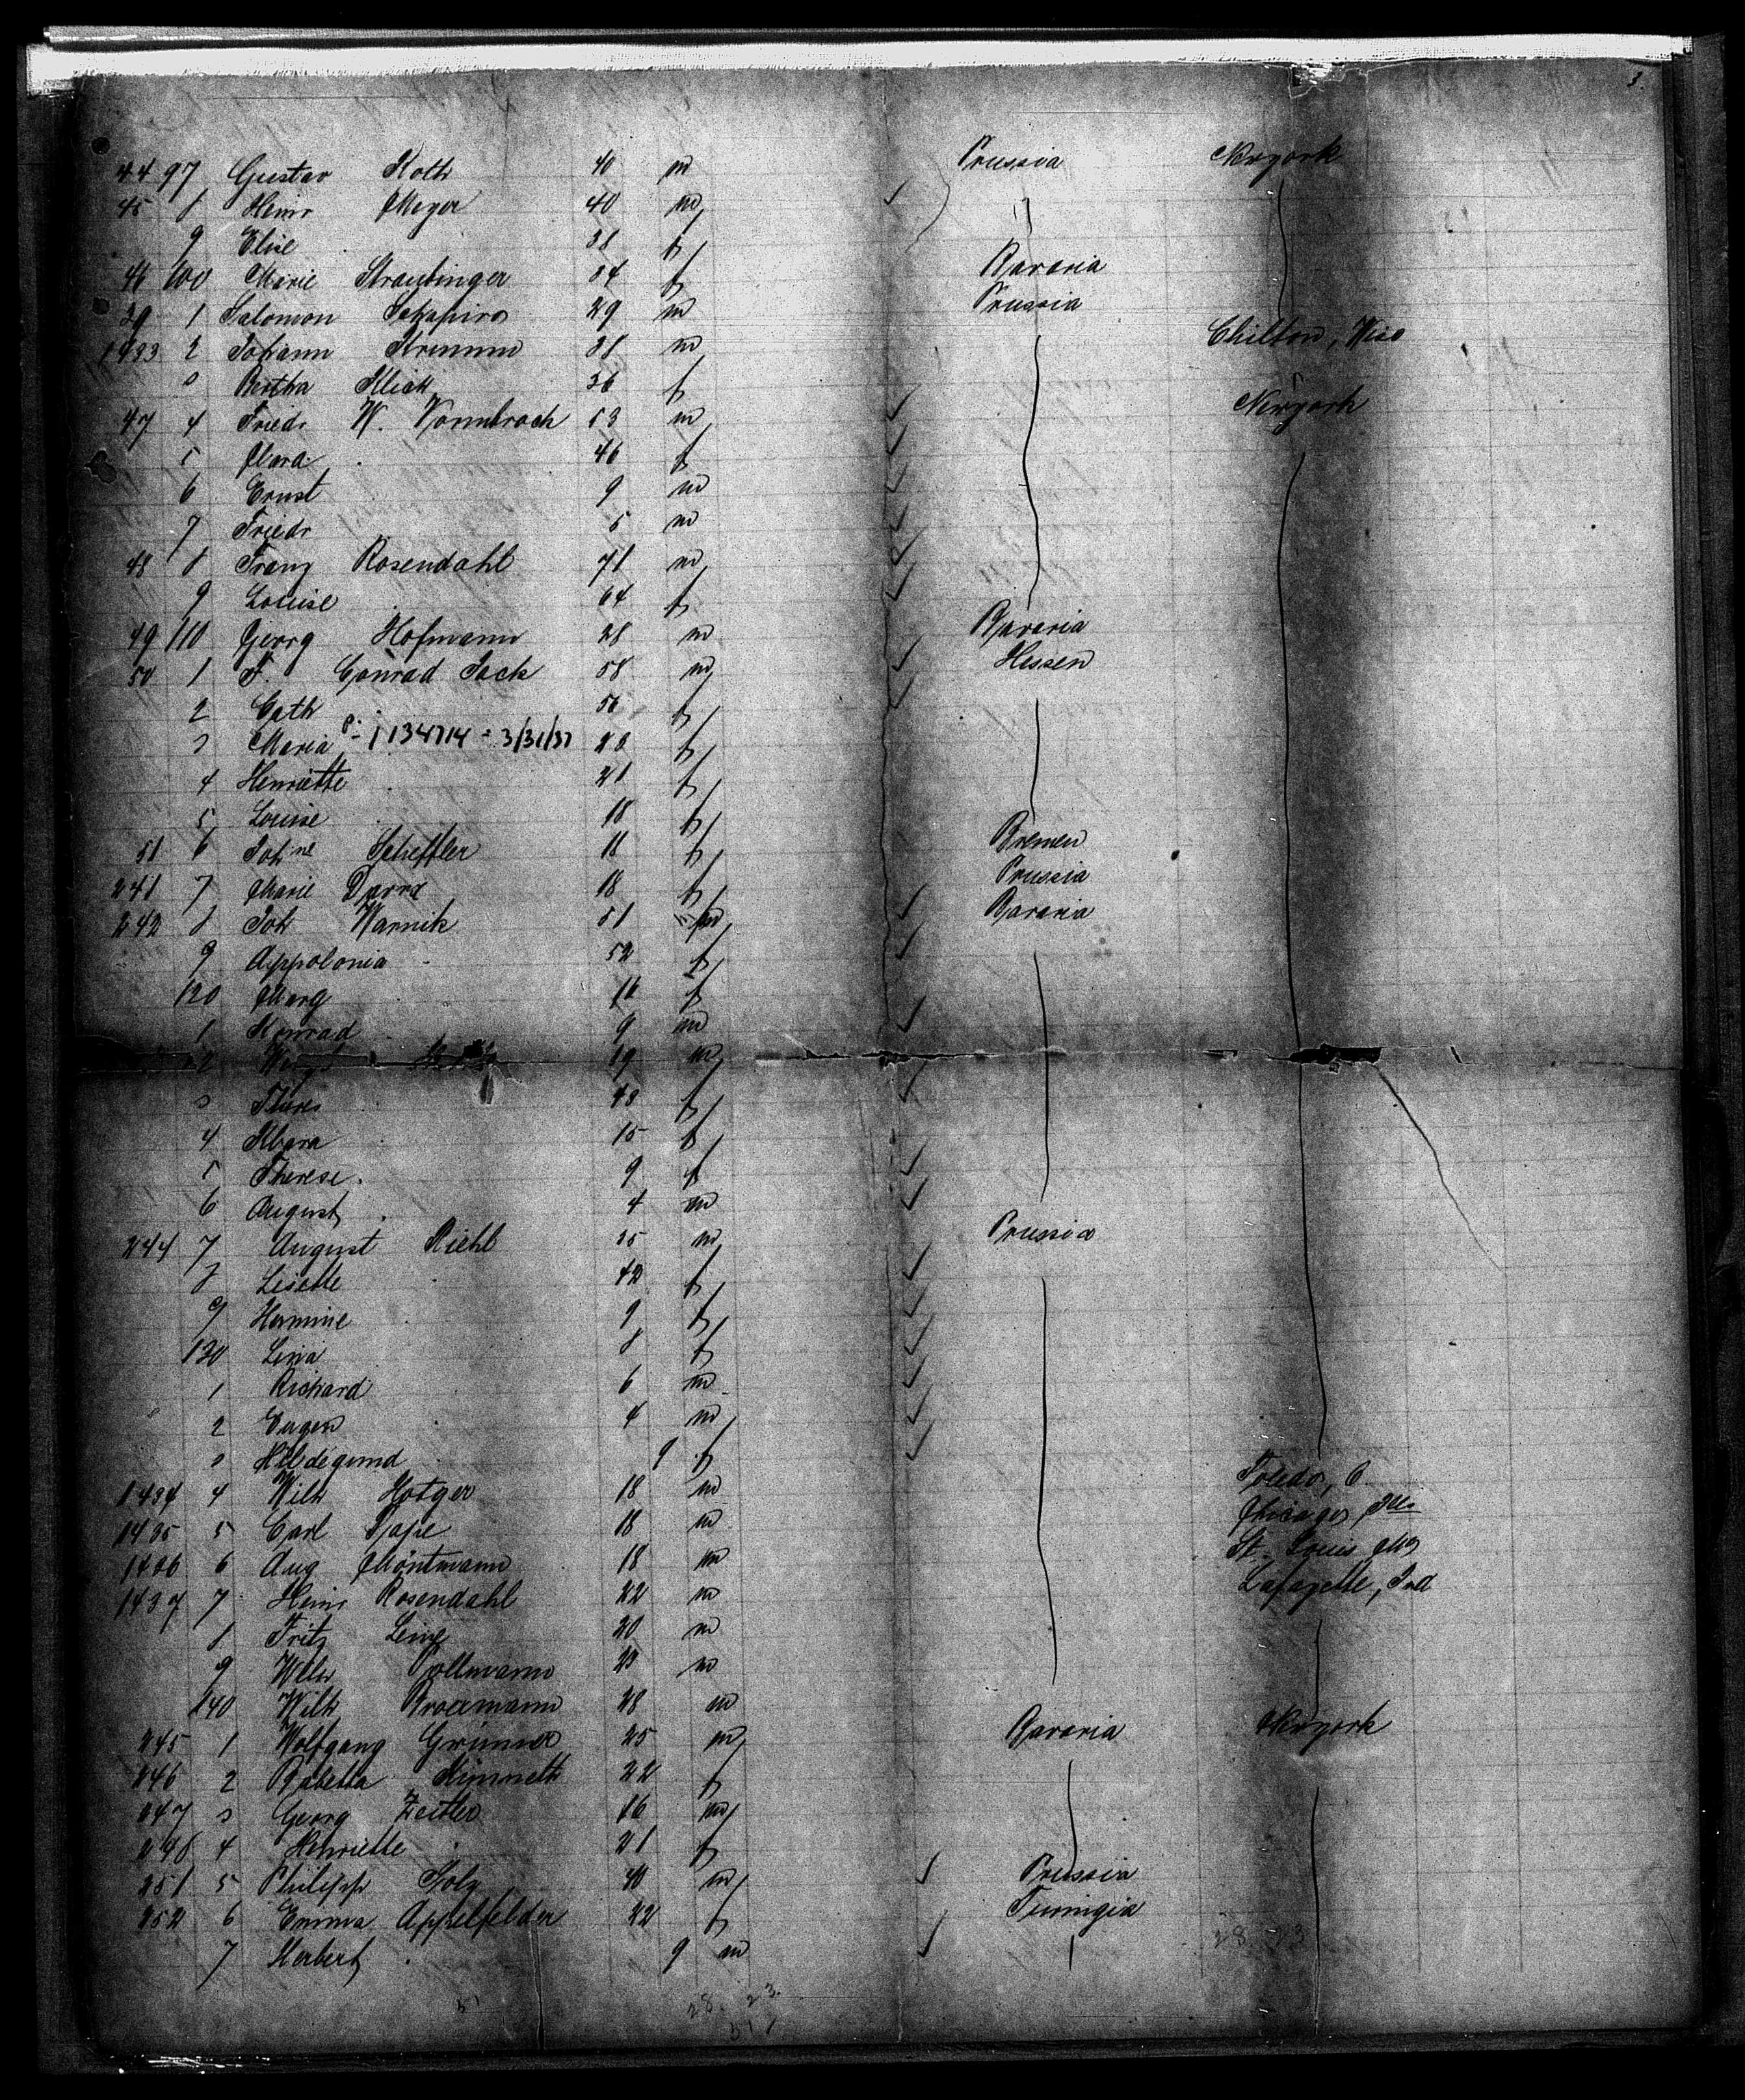 3.
44 97 Gustav Roth 40 m Prussia Newyork
45 8 Heinr Meyer 40 m
9 Elise 38 f
46 100 Marie Straubinger 34 f Bavaria
29 1 Salomon Schapiro 29 m Prussia
1433 2 Johann 31 m Chilton, Wisc
3 Bertha 36 f
47 4 Friedr W. Vormbrock 53 m Newyork
5 Clara 46 f
6 Ernst 9 m
7 Friedr 5 m
48 8 Franz Rosendahl 71 m
9 Louise 64 f
49 110 Georg Hofmann 28 m Bavaria
50 1 F. Conrad Jack 58 m Hessen
2 Cath 56 f
3 Maria - 1134714 - 3/31/37 23 f
4 Henriette 21 f
5 Louise 18 f
51 6 Joh ne Scheffler 18 f Bremen
241 7 Marie 18 f Prussia
242 8 Joh Warnik 51 m Bavaria
9 Appolonia 52 f
120 Marg 16 f
1 Konrad 9 m
2 19 m
3 Theres 43 f
4 15 f
5 Therese 9 f
6 August 4 m
244 7 August Riehl 35 m Prussia
8 Lisette 42 f
9 Hermine 9 f
130 Lina 8 f
1 Richard 6 m
2 Eugen 4 m
3 Hildegund 9 f
1434 4 Wilh Hotger 18 m Toledo, O.
1435 5 Carl Pape 18 m Chicago, Ills
1436 6 Aug Möntmann 18 m St. Louis Mo
1437 7 Heinr Rosendahl 22 m Lafayette, Ind
8 Fritz 20 m
9 Wilh Pollmann 23 m
140 Wilh Brockmann 28 m
245 1 Wolfgang 25 m Bavaria Newyork
246 2 Babetta 22 f
247 3 Georg Zeitler 16 m
248 4 Henriette 21 f
251 5 Philipp 40 m Prussia
252 6 Emma Appelfelder 22 f Turingia
7 Herbert 9 m
28 23
51 28. 23.
51